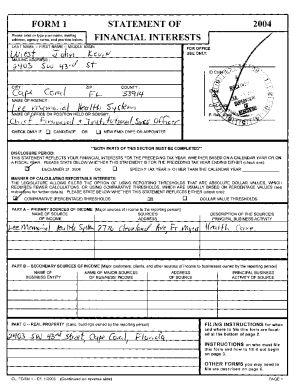 FORM 1
STATEMENT OF
2004
FINANCIAL INTERESTS
Please print or type your name, mailing
address, agency name, and position below:
LAST NAME -- FIRST NAME -- MIDDLE NAME:
West John, Kevin
MAILING ADDRESS:
2403 SW 43rd St
FOR OFFICE
USE ONLY:
CITY ZIP COUNTY
Cape Coral FL 33914
NAME OF AGENCY:
Lee Memorial Health System
NAME OF OFFICE OR POSITION HELD OR SOUGHT:
Chief Financial + Officer
CHECK ONLY IF CANDIDATE OR NEW EMPLOYEE OR APPOINTEE
**BOTH PARTS OF THIS SECTION MUST BE COMPLETED**
DISCLOSURE PERIOD:
THIS STATEMENT REFLECTS YOUR FINANCIAL INTERESTS FOR THE PRECEDING TAX YEAR, WHETHER BASED ON A CALENDAR YEAR OR ON
A FISCAL YEAR. PLEASE STATE BELOW WHETHER THIS STATEMENT IS FOR THE PRECEDING TAX YEAR ENDING EITHER (check one):
DECEMBER 31, 2004 OR SPECIFY TAX YEAR IF OTHER THAN THE CALENDAR YEAR:
MANNER OF CALCULATING REPORTABLE INTERESTS:
THE LEGISLATURE ALLOWS FILERS THE OPTION OF USING REPORTING THRESHOLDS THAT ARE ABSOLUTE DOLLAR VALUES, WHICH
REQUIRES FEWER CALCULATIONS, OR USING COMPARATIVE THRESHOLDS, WHICH ARE USUALLY BASED ON PERCENTAGE VALUES (see
instructions for further details). PLEASE STATE BELOW WHETHER THIS STATEMENT REFLECTS EITHER (check one):
COMPARATIVE (PERCENTAGE) THRESHOLDS OR DOLLAR VALUE THRESHOLDS
PART A -- PRIMARY SOURCES OF INCOME [Major sources of income to the reporting person]
NAME OF SOURCE
OF INCOME
SOURCE'S
ADDRESS
DESCRIPTION OF THE SOURCE'S
PRINCIPAL BUSINESS ACTIVITY
Lee Memorial Health System 2776 Cleveland Ave Ft Myers Health Care
PART B -- SECONDARY SOURCES OF INCOME [Major customers, clients, and other sources of income to businesses owned by the reporting person]
NAME OF
BUSINESS ENTITY
NAME OF MAJOR SOURCES
OF BUSINESS' INCOME
ADDRESS
OF SOURCE
PRINCIPAL BUSINESS
ACTIVITY OF SOURCE
PART C -- REAL PROPERTY [Land, buildings owned by the reporting person]
2403 SW 43rd Street, Cape Coral, Florida
FILING INSTRUCTIONS for when
and where to file this form are located
at the bottom of page 2.
INSTRUCTIONS on who must file
this form and how to fill it out begin
on page 3.
OTHER FORMS you may need
to file are described on page 6.
CE FORM 1 - Eff. 1/2005 (Continued on reverse side) PAGE 1